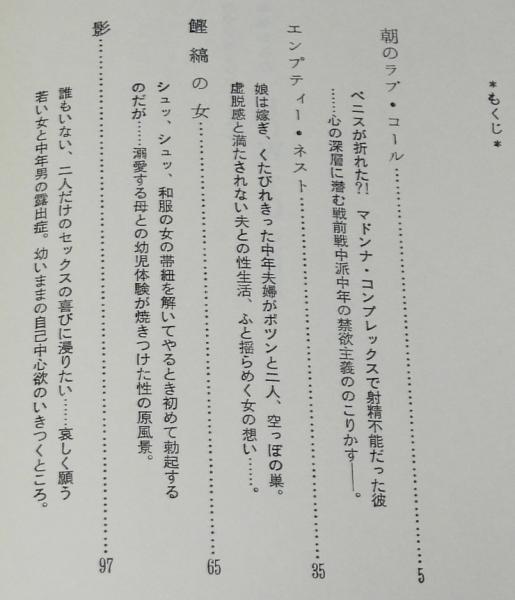 *もくじ*
朝のラブ・コール……………………………5
ペニスが折れた?! マドンナ・コンプレックスで射精不能だった彼
……心の深層に潜む戦前戦中派中年の禁欲主義ののこりかす——。
エンプティー・ネスト……………………………35
娘は嫁ぎ、くたびれきった中年夫婦がポツンと二人、空っぽの巣。
虚脱感と満たされない夫との性生活、ふと揺らめく女の想い……。
鰹縞の女……………………………65
シュッ、シュッ、和服の女の帯紐を解いてやるとき初めて勃起する
のだが……溺愛する母との幼児体験が焼きつけた性の原風景。
影……………………………97
誰もいない、二人だけのセックスの喜びに浸りたい……哀しく願う
若い女と中年男の露出症。幼いままの自己中心欲のいきつくところ。